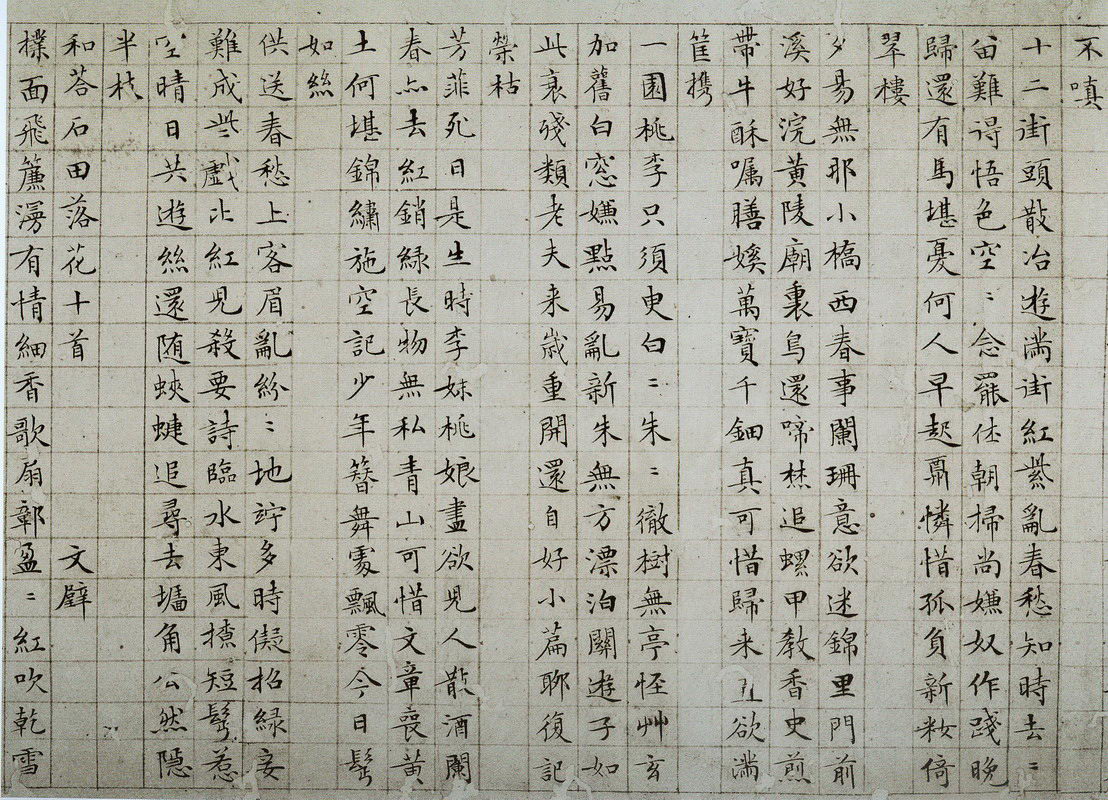 不嗔
十二街頭散冶遊滿街紅紫亂春愁知時去〻
畱難得悟色空〻念罷休朝掃尚嫌奴作踐晚
歸還有馬堪憂何人早起憐惜孤負新妝倚
翠樓
夕昜無那小橋西春事闌珊意欲迷錦里門前
溪好浣黃陵廟裏鳥還啼焚追螺甲教香史煎
帶牛酥囑膳㜎萬寶千鈿真可惜歸來直欲滿
筐携
一園桃李只須臾白〻朱〻徹樹無亭怪艸玄
加舊白窓嫌點易亂新朱無方漂泊關遊子如
此衰殘類老夫来歲重開還自好小篇聊復記
榮枯
芳菲死日是生時李妹桃娘盡欲兒人散酒闌
春亦去紅銷綠長物無私青山可惜文章喪黃
土何堪錦繡施空記少年簪舞處飄零今日鬢
如絲
供送春愁上客眉亂紛〻地竚多時儗招綠妾
難成些戲比紅兒殺要詩臨水東風撩短鬢惹
空晴日共遊絲還随蛺蜨追尋去墻角公然隱
半枝
和荅石田落花十首 文壁
撲面飛簾漫有情細香歌扇鄣盈〻紅吹乾雪